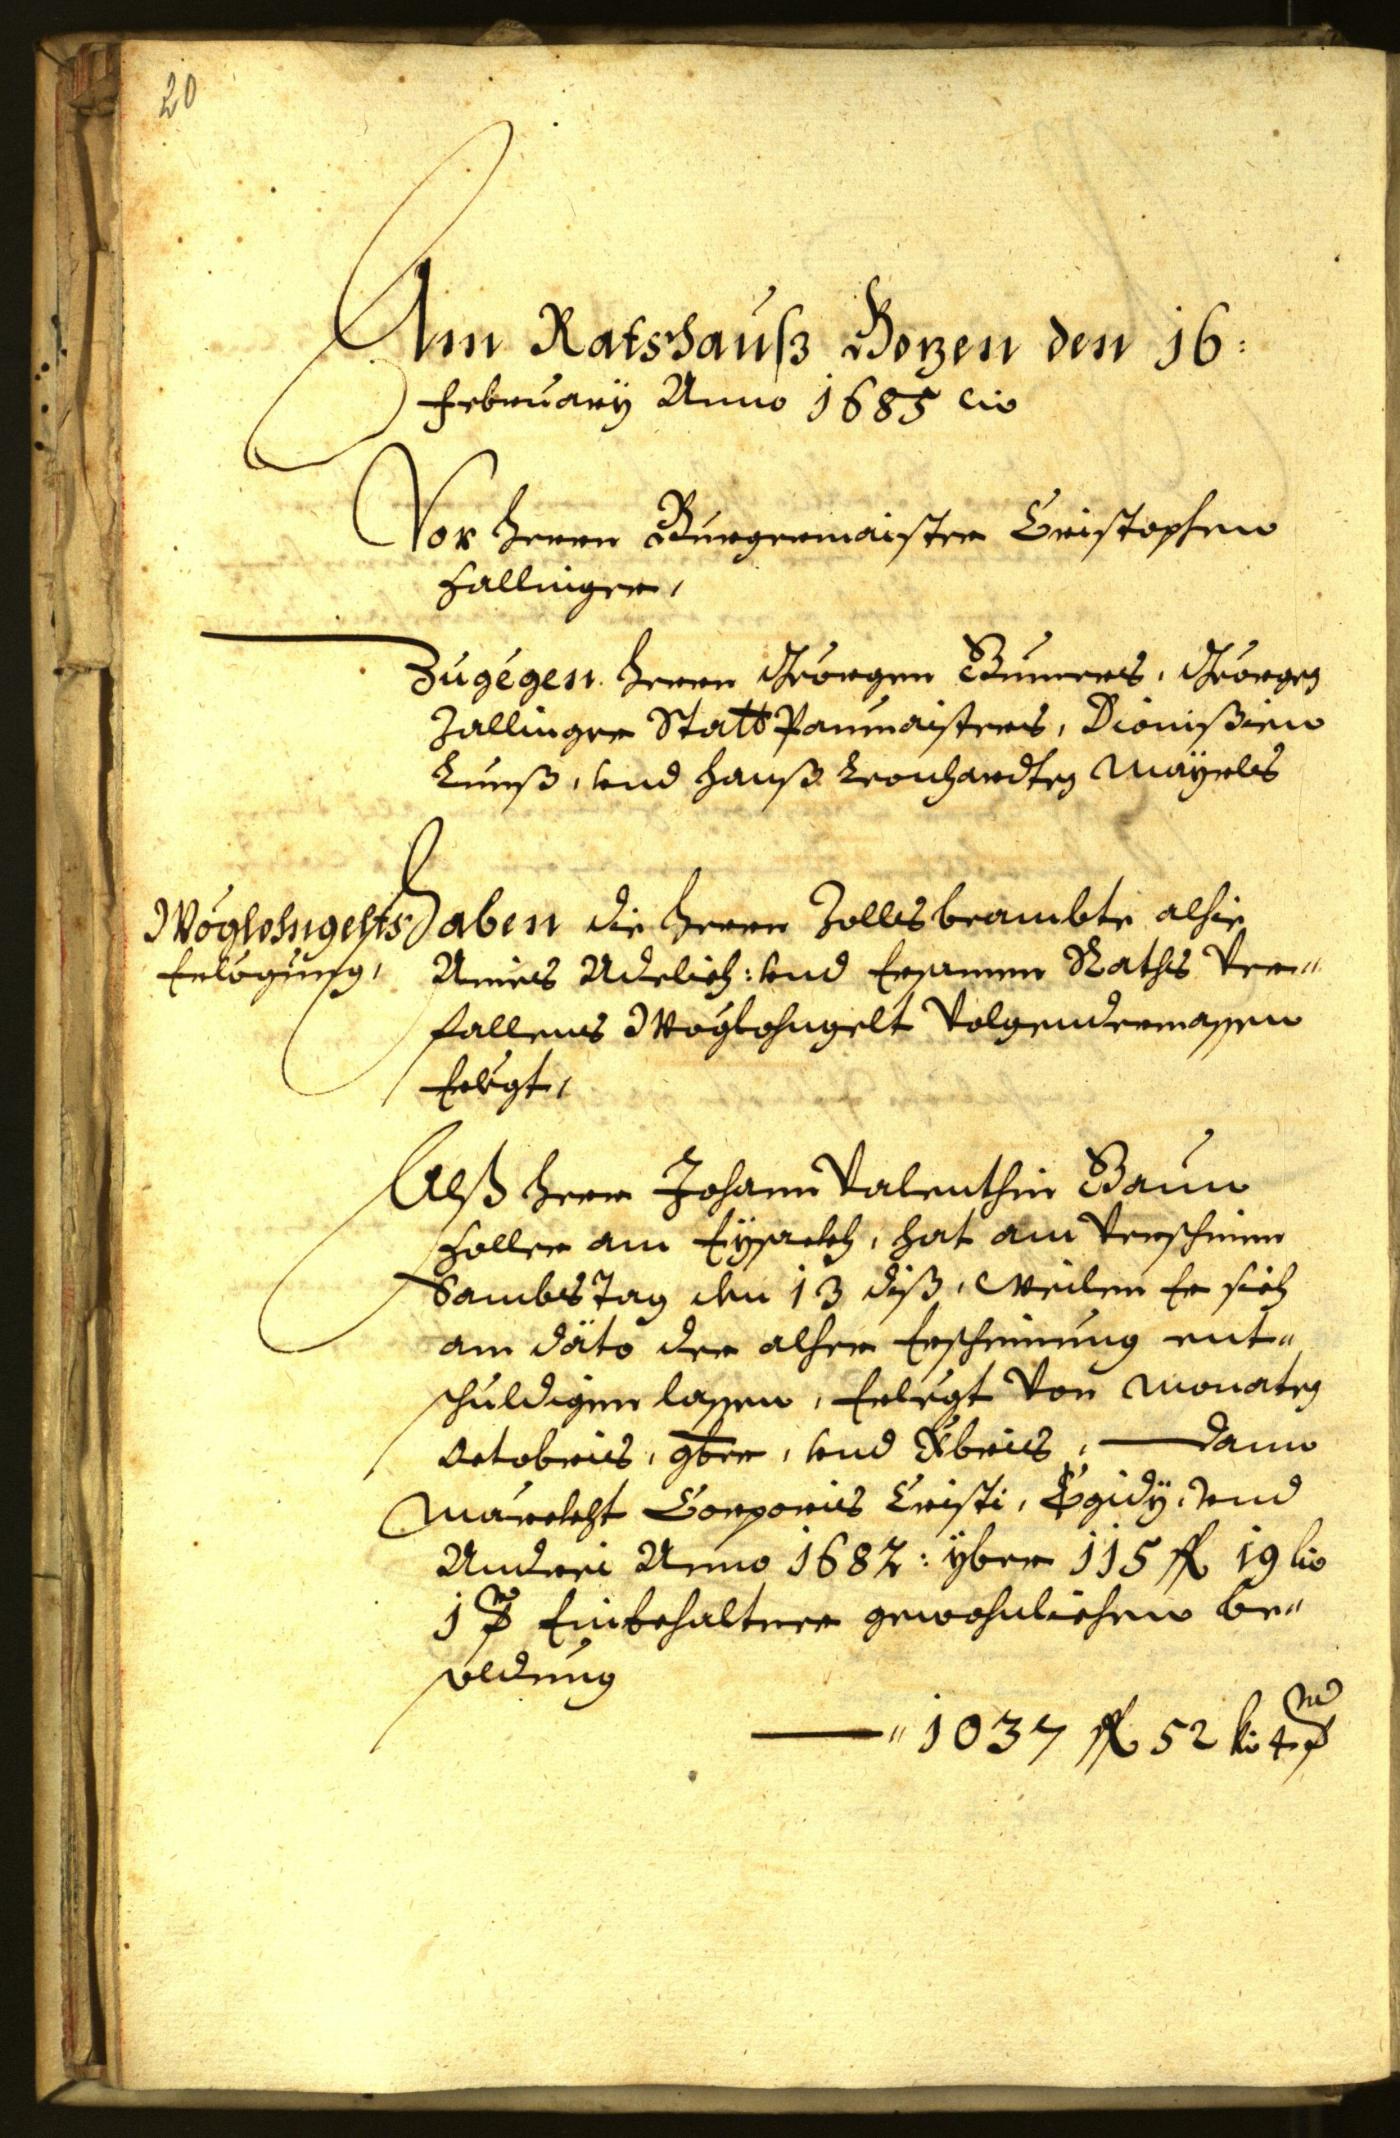 20
Am Ratshauß Bozen den 16:
February Anno 1685
Vor herrn Burgermaister Cristophen
Zallinger,
Zugegen herrn Georgen Georgen
Zallinger Statt Paumaisters, Dionißien
Kunß, vnd Hanß Leonhardten Mayrls
Wöglohngelts
Erlögung,
Haben die herrn Zollsbeambte alhie
Ains Adelich: vnd Ersamen Raths Ver„
fallenes Wöglohngelt Volgendermassen
Erlegt,
Alß herr Johann Valenthin
Zoller am Eysackh, hat am Verschinen
Sambstag den 13 diß, Weilen Er sich
am däto der alher Erscheinung ent„
schuldigen lassen, Erlegt Von Monaten
Octobris, 9ber, vnd Xbris, dann
Märckht Corporis Cristi, Egidy, vnd
Andrei Anno 1682: yber 115 fl 19 kr
1 Einbehaltner gewohnlichen be„
soldung
„ 1037 fl 52 kr 4